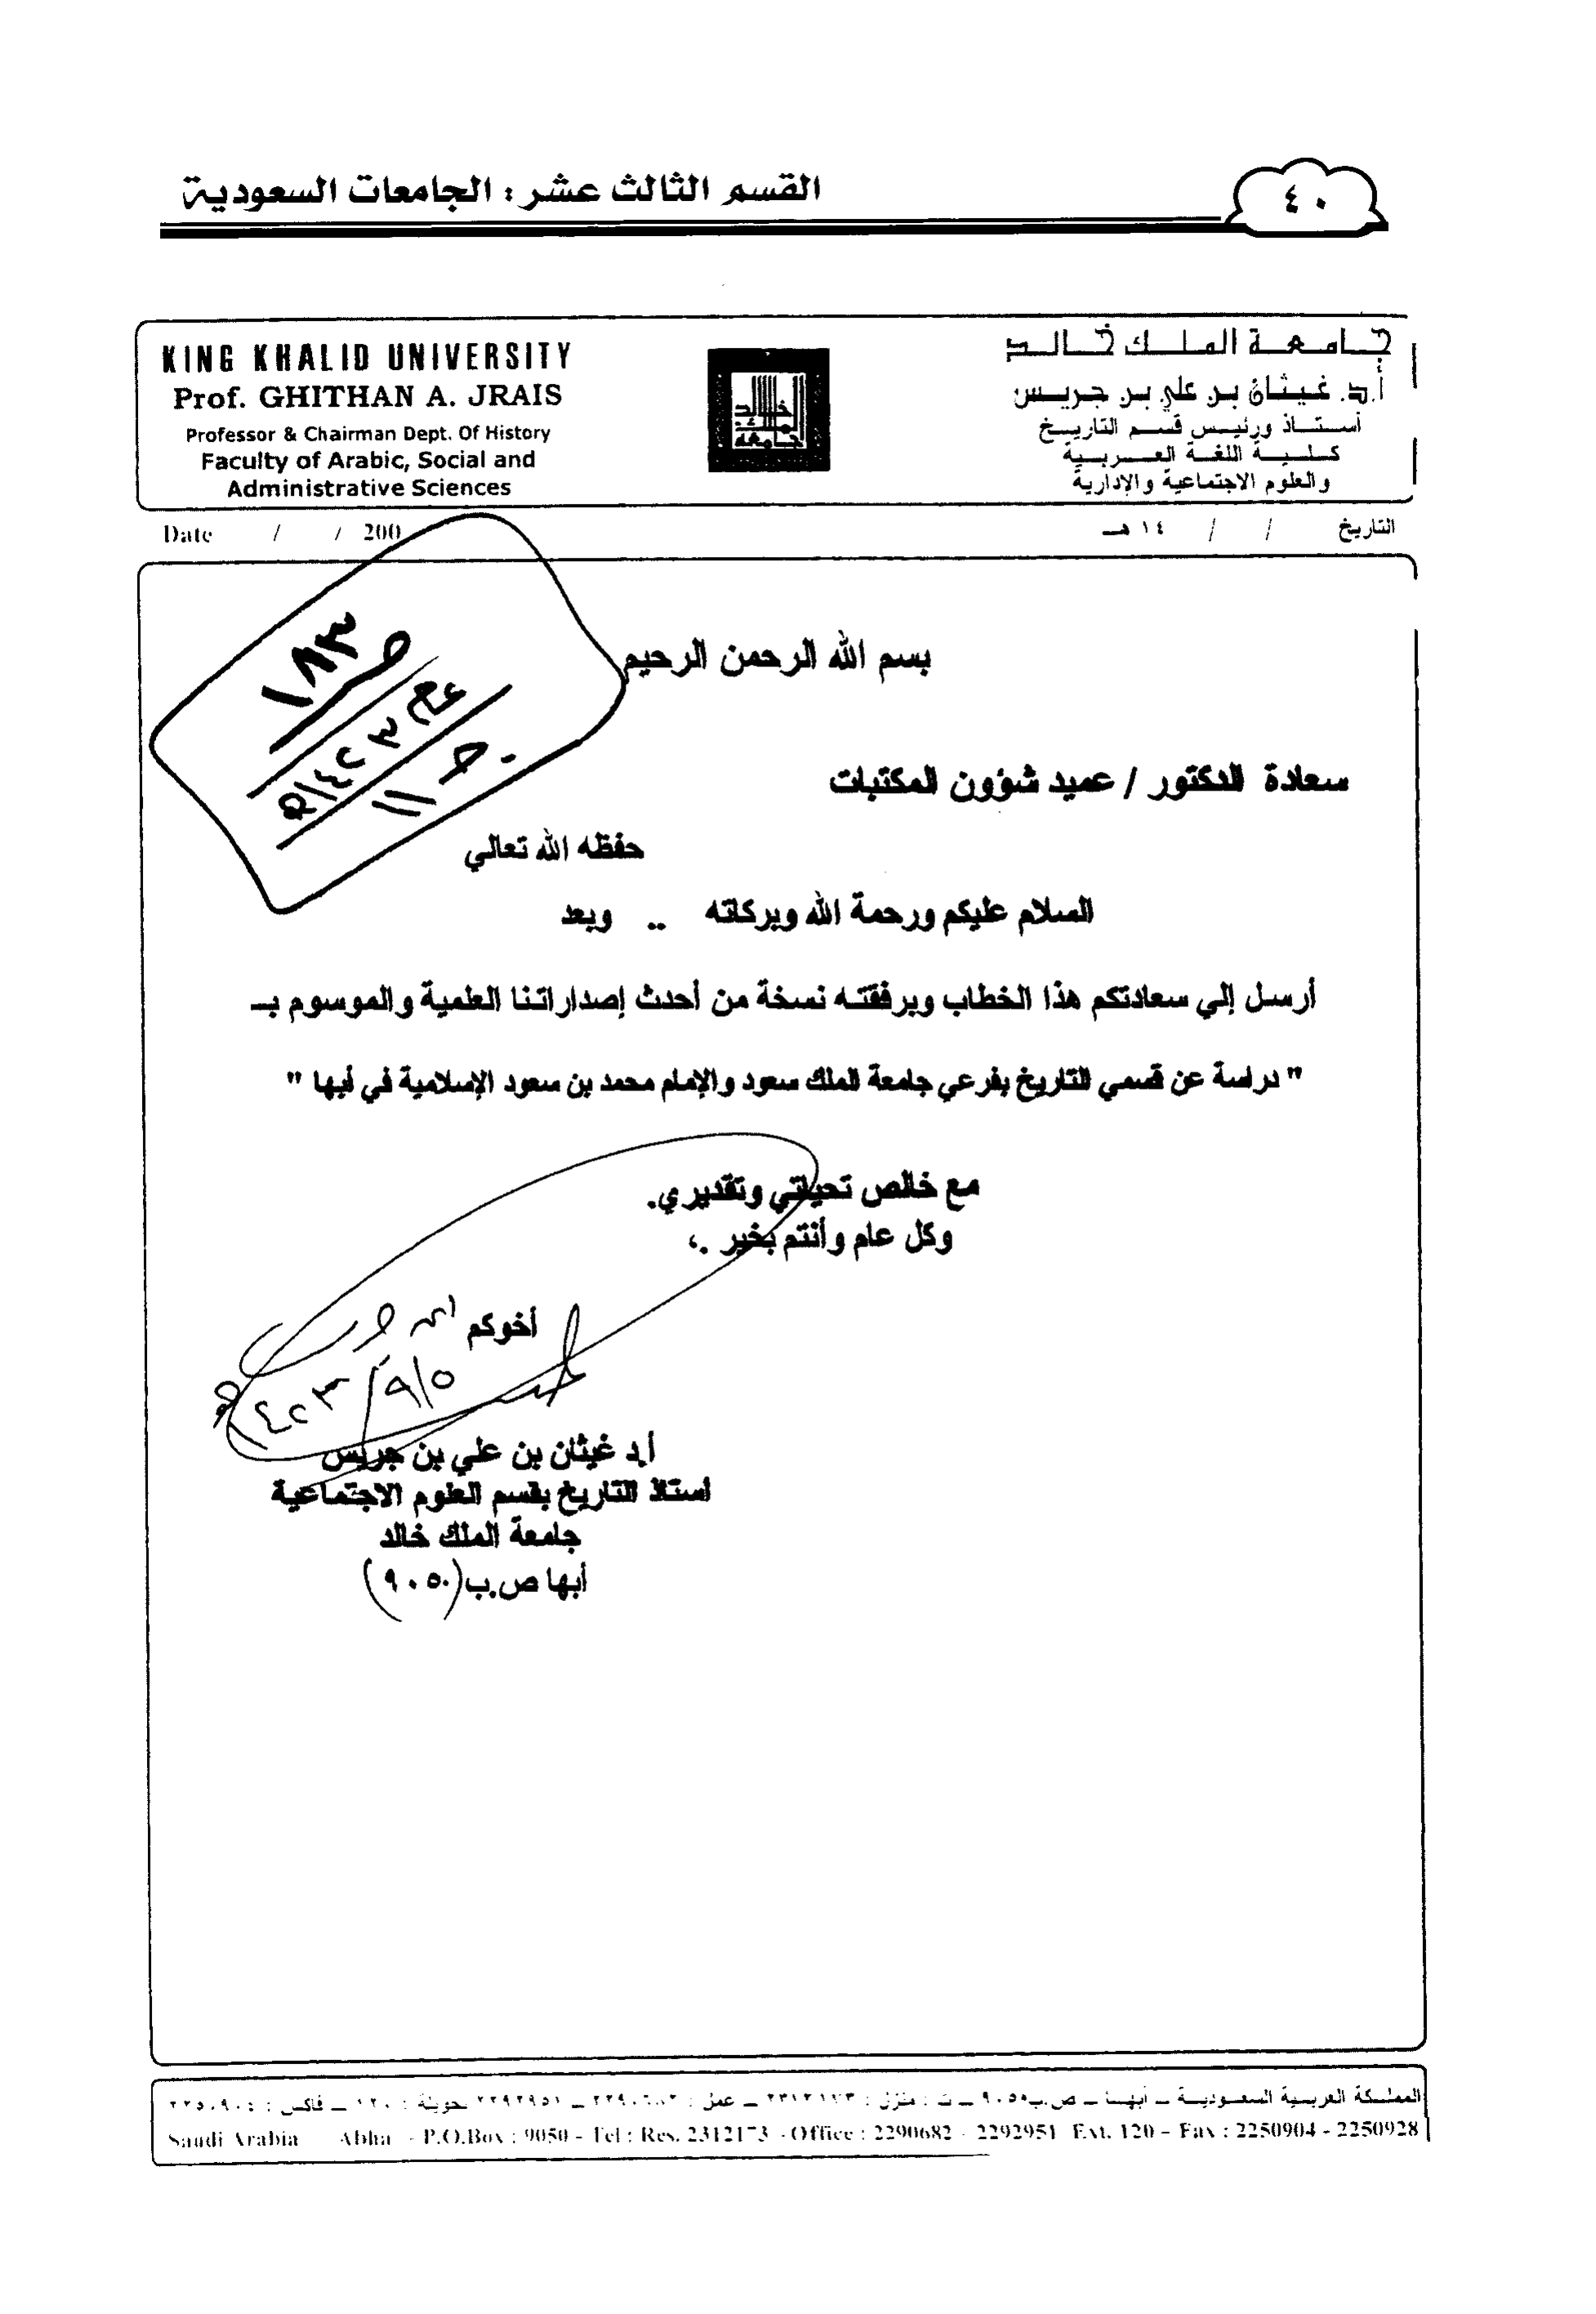 ٤٠
القسم الثالث عشر : الجامعات السعودية
KING KHALID UNIVERSITY
Prof. GHITHAN A. JRAIS
Professor & Chairman Dept. Of History
Faculty of Arabic, Social and
Administrative Sciences
جامعة الملك خالد
جامعة الملك خالد
أ.د. غيثان بن علي بن جريس
أستاذ ورئيس قسم التاريخ
كلية اللغة العربية
والعلوم الاجتماعية والإدارية
Date / / 200
التاريخ / / ١٤ هـ
١٨٣
بسم الله الرحمن الرحيم
سعادة الدكتور / عميد شؤون المكتبات
حفظه الله تعالي
السلام عليكم ورحمة الله وبركاته .. وبعد
أرسل إلي سعادتكم هذا الخطاب وبرفقته نسخة من أحدث إصداراتنا العلمية والموسوم بـ
" دراسة عن قسمي التاريخ بفرعي جامعة الملك سعود والإمام محمد بن سعود الإسلامية في أبها "
مع خالص تحياتي وتقديري.
وكل عام وأنتم بخير .،
أخوكم
١٤٢٣/٩/٥هـ
أ.د غيثان بن علي بن جريس
أستاذ التاريخ بقسم العلوم الاجتماعية
جامعة الملك خالد
أبها ص.ب(٩٠٥٠)
المملكة العربية السعودية ــ أبها ــ ص.ب ــ ت : منزل : ٢٣١٢١٧٣ ــ عمل : ٢٢٩٠٦٨٢ ــ ٢٢٩٢٩٥١ تحويلة : ١٢٠ ــ فاكس : ٢٢٥٠٩٠٤
Saudi Arabia Abha - P.O.Box : 9050 - Tel : Res. 2312173 - Office : 2290682 - 2292951 Ext. 120 - Fax : 2250904 - 2250928